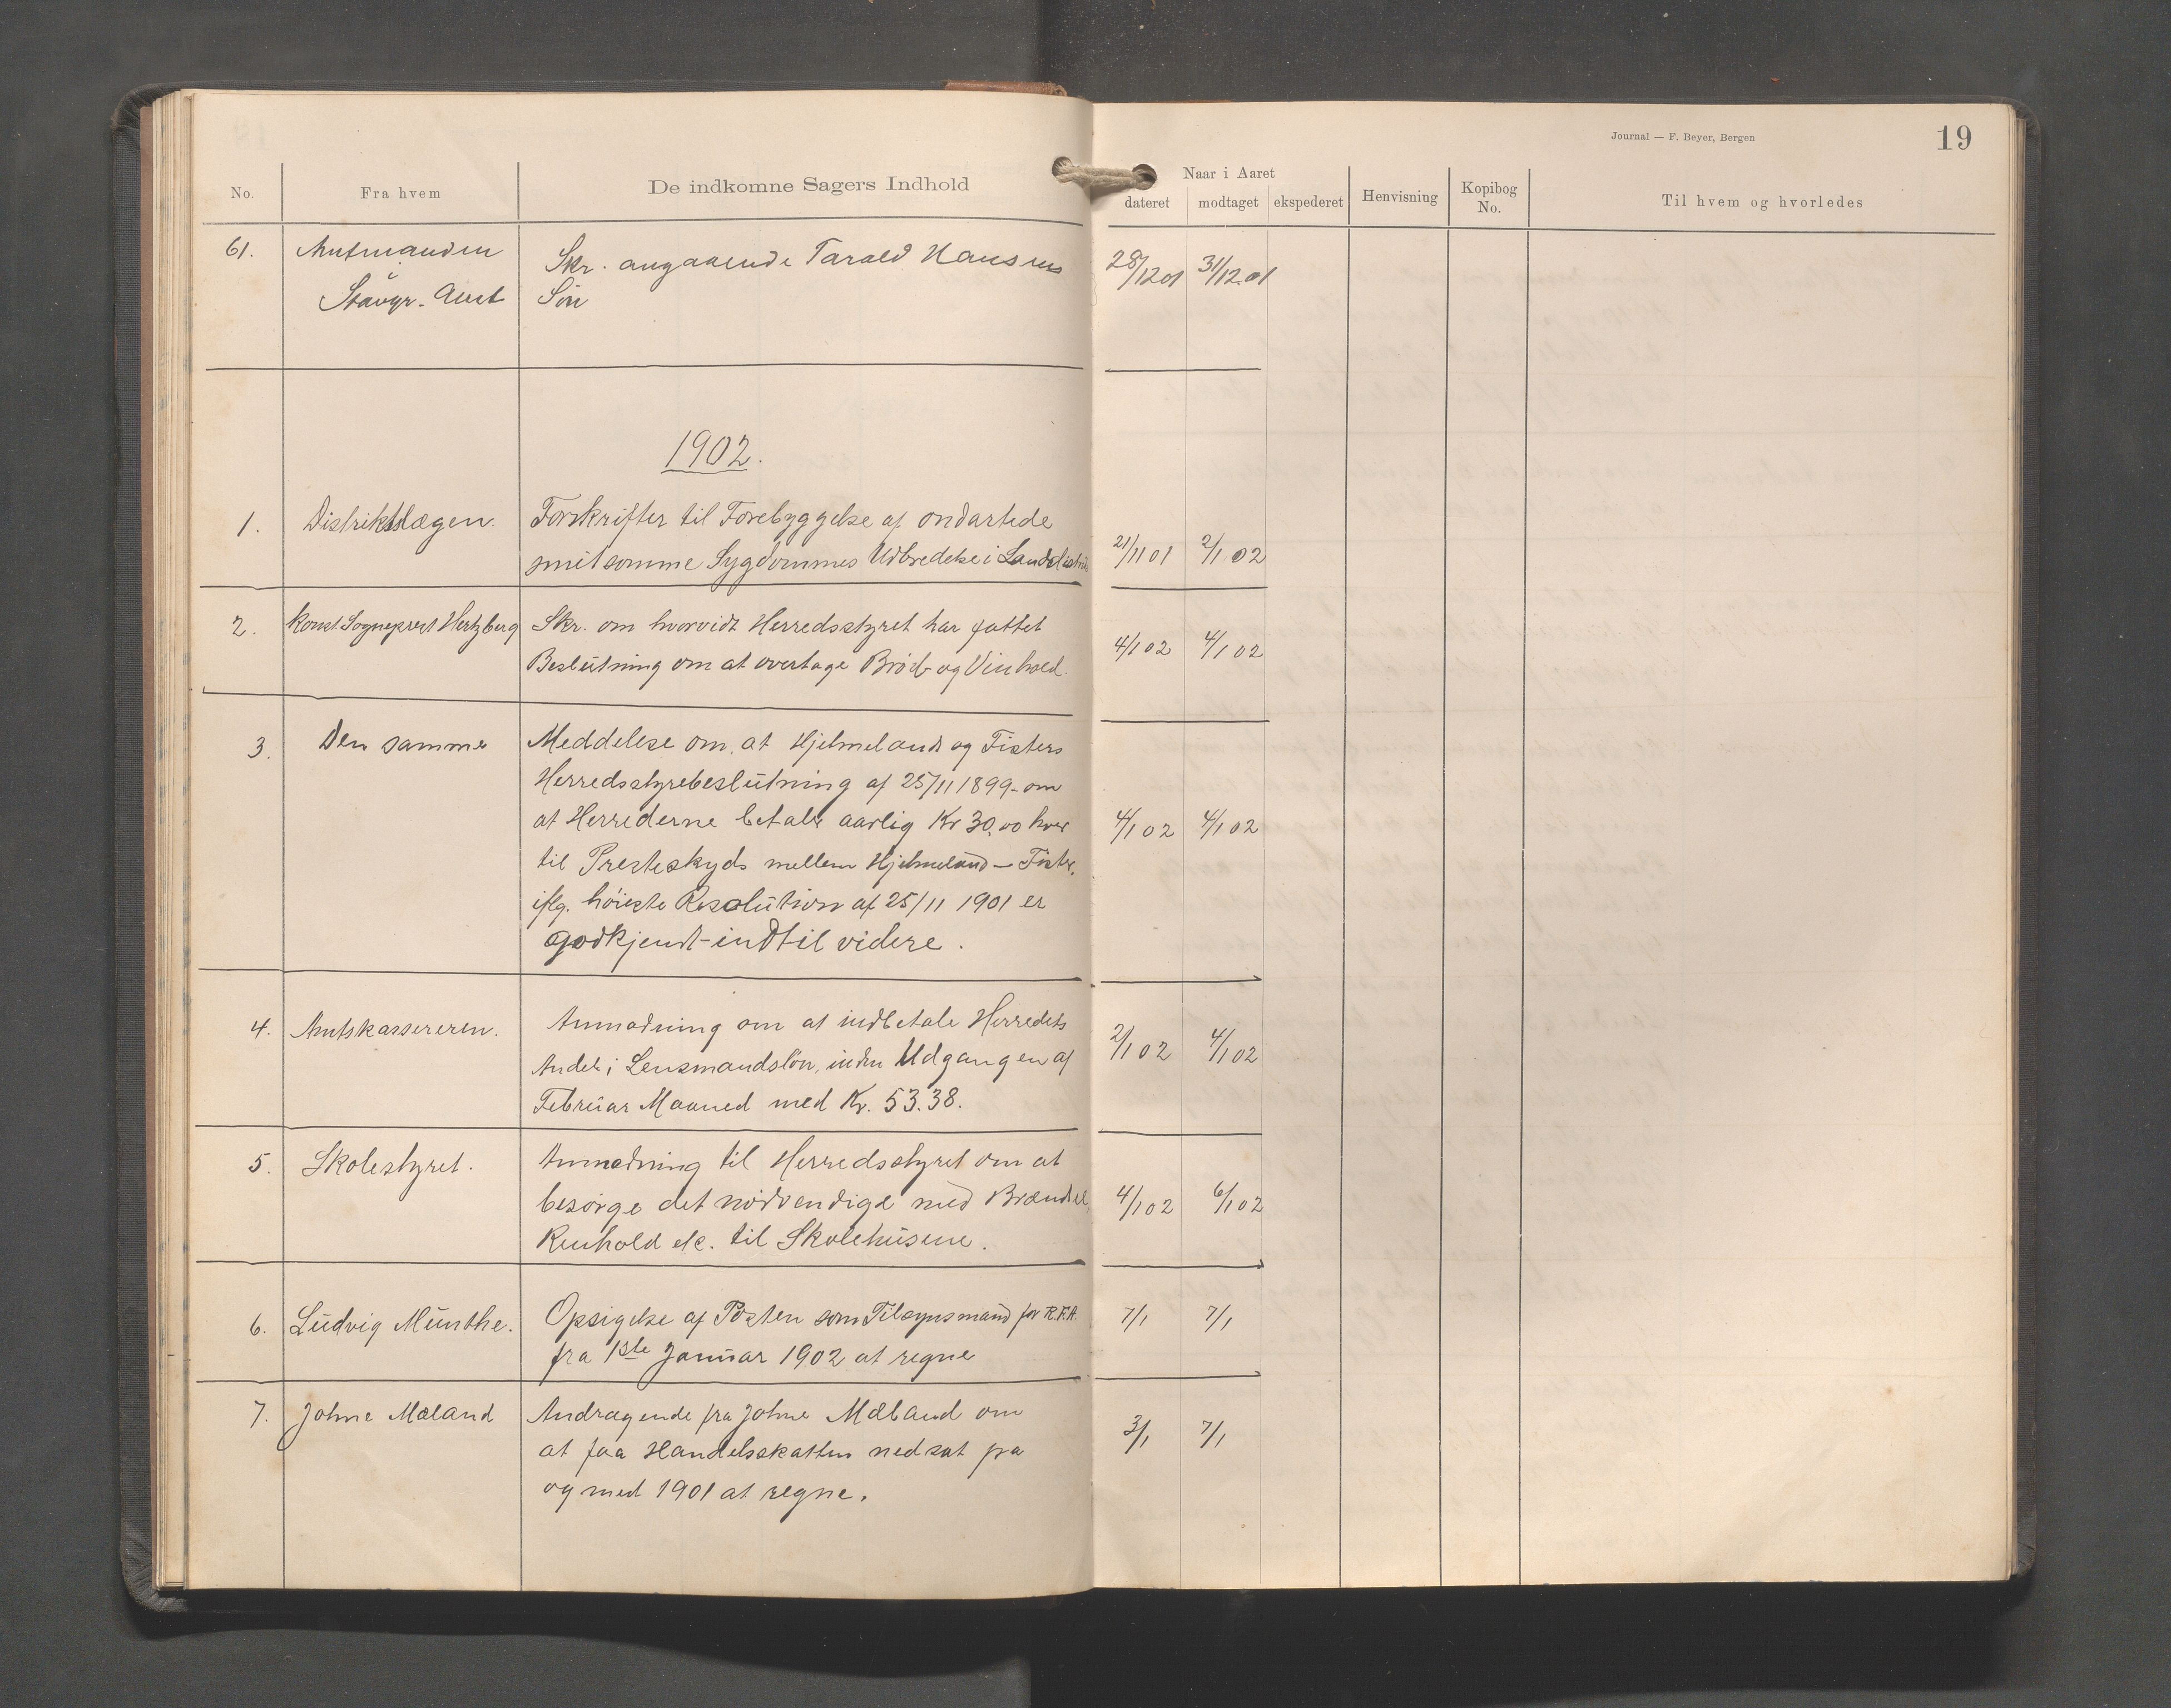 Journal — F. Beyer, Bergen
19
No.
Fra hvem
De indkomne Sagers Indhold
Naar i Aaret
dateret
modtaget
ekspederet
Henvisning
Kopibog
No.
Til hvem og hvorledes
61. Amtmanden Skr. angaaende Tarald Hansens 28/12 01 31/12.01
Stavgr. Amt Søn
1902.
1. Distriktslægen. Forskrifter til Forebyggelse af ondartede
smitsomme Sygdommes Udbredelse i Landdistr 21/11 01 2/1 02
2. Konst. Sogneprest Hertzberg Skr. om hvorvidt Herredsstyret har fattet
Beslutning om at overtage Brød- og Vinhold. 4/1 02 4/1 02
3. Den samme Meddelese om, at Hjelmeland og Fisters
Herredsstyrebeslutning af 25/11 1899 - om
at Herrederne betaler aarlig Kr 30,00 hver 4/1 02 4/1 02
til Presteskyds mellem Hjelmeland — Fister,
iflg. høieste Resolution af 25/11 1901 er
godkjendt - indtil videre.
4. Amtskassereren. Anmodning om at indbetale Herredets
Andel i Lensmandsløn, inden Udgangen af 2/1 02 4/1 02
Februar Maaned med Kr. 53.38.
5. Skolestyret. Anmodning til Herredsstyret om at
besørge det nødvendige med Brændsel, 4/1 02 6/1 02
Renhold etc. til Skolehusene.
6. Ludvig Munthe. Opsigelse af Posten som Tilsynsmand for R.F.A. 7/1 7/1
fra 1ste Januar 1902 at regne
7. Johne Mæland Andragende fra Johne Mæland om
at faa Handelsskatten nedsat fra 3/1 7/1
og med 1901 at regne.